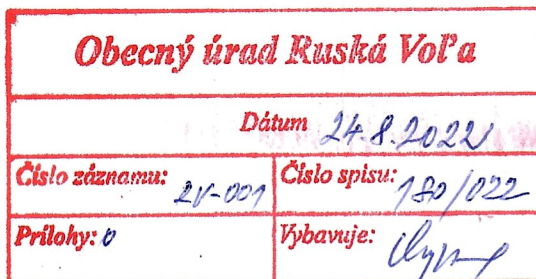 Obecný úrad Ruská Voľa
Dátum 24.8.2022
Číslo záznamu: ZV-001 Číslo spisu: 180/022
Prílohy: 0 Vybavuje: